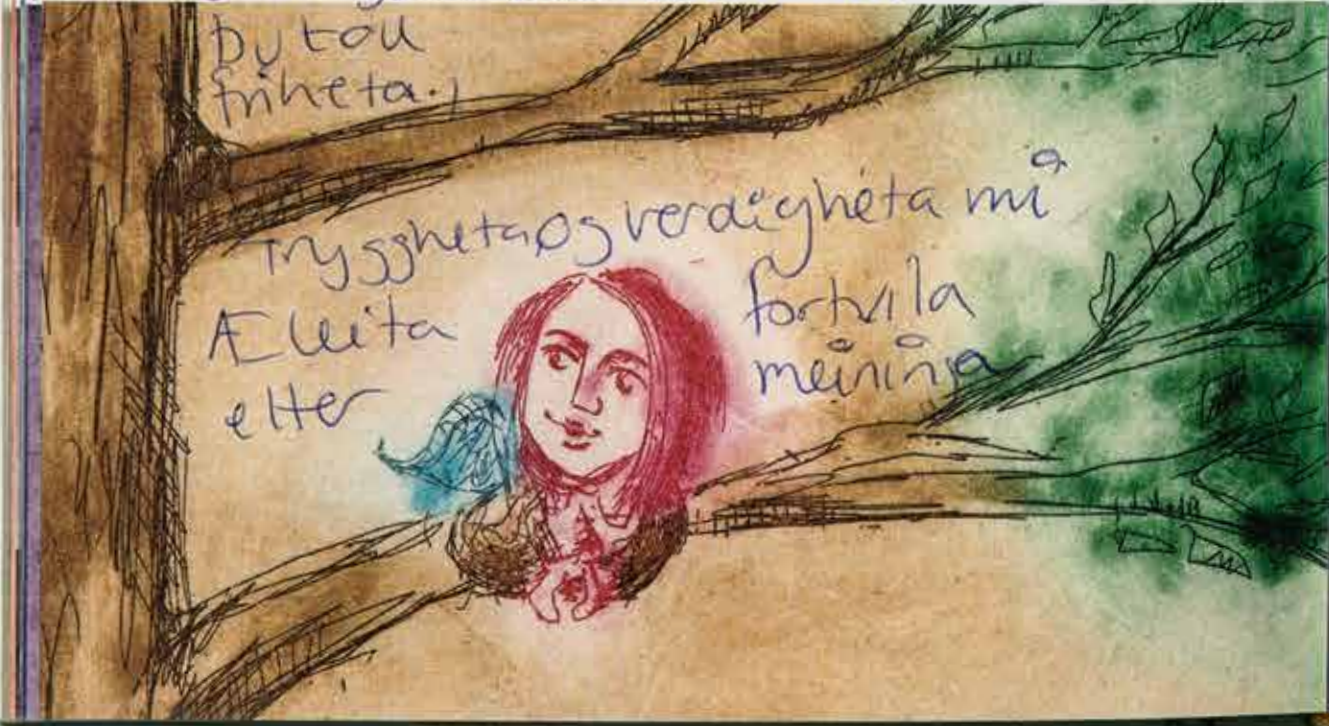 Du tok
friheta.
Tryggheta og verdigheta mi
Æ leita
etter
fortvila
meininga